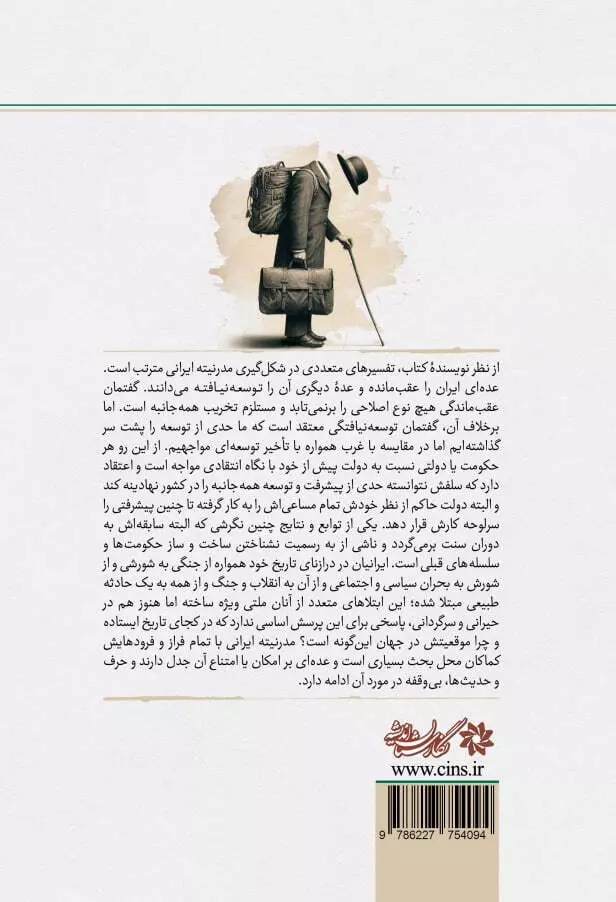 از نظر نویسندهٔ کتاب، تفسیرهای متعددی در شکل‌گیری مدرنیته ایرانی مترتب است.
عده‌ای ایران را عقب‌مانده و عدهٔ دیگری آن را توسعه‌نیافته می‌دانند. گفتمان
عقب‌ماندگی هیچ نوع اصلاحی را برنمی‌تابد و مستلزم تخریب همه‌جانبه است. اما
برخلاف آن، گفتمان توسعه‌نیافتگی معتقد است که ما حدی از توسعه را پشت سر
گذاشته‌ایم اما در مقایسه با غرب همواره با تأخیر توسعه‌ای مواجهیم. از این رو هر
حکومت یا دولتی نسبت به دولت پیش از خود با نگاه انتقادی مواجه است و اعتقاد
دارد که سلفش نتوانسته حدی از پیشرفت و توسعه همه‌جانبه را در کشور نهادینه کند
و البته دولت حاکم از نظر خودش تمام مساعی‌اش را به کار گرفته تا چنین پیشرفتی را
سرلوحه کارش قرار دهد. یکی از توابع و نتایج چنین نگرشی که البته سابقه‌اش به
دوران سنت برمی‌گردد و ناشی از به رسمیت نشناختن ساخت و ساز حکومت‌ها و
سلسله‌های قبلی است. ایرانیان در درازنای تاریخ خود همواره از جنگی به شورشی و از
شورش به بحران سیاسی و اجتماعی و از آن به انقلاب و جنگ و از همه به یک حادثه
طبیعی مبتلا شده؛ این ابتلاهای متعدد از آنان ملتی ویژه ساخته اما هنوز هم در
حیرانی و سرگردانی، پاسخی برای این پرسش اساسی ندارد که در کجای تاریخ ایستاده
و چرا موقعیتش در جهان این‌گونه است؟ مدرنیته ایرانی با تمام فراز و فرودهایش
کماکان محل بحث بسیاری است و عده‌ای بر امکان یا امتناع آن جدل دارند و حرف
و حدیث‌ها، بی‌وقفه در مورد آن ادامه دارد.
نگارستان اندیشه
www.cins.ir
9 786227 754094